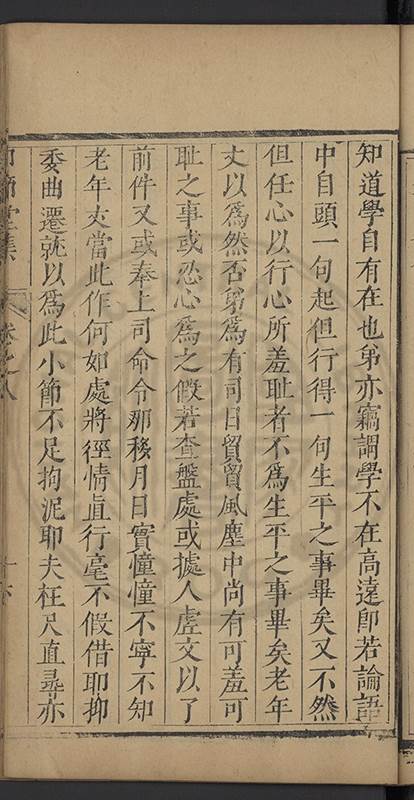 知道學自有在也弟亦竊謂學不在高遠即若論語
中自頭一句起但行得一句生平之事畢矣又不然
但任心以行心所羞耻者不為生平之事畢矣老年
丈以為然否弟為有司日貿貿風塵中尚有可羞可
耻之事或忍心為之假若查盤處或據人虛文以了
前件又或奉上司命令那移月日實憧憧不寧不知
老年丈當此作何如處將徑情直行毫不假借耶抑
委曲遷就以為此小節不足拘泥耶夫枉尺直尋亦
節堂集
卷之八